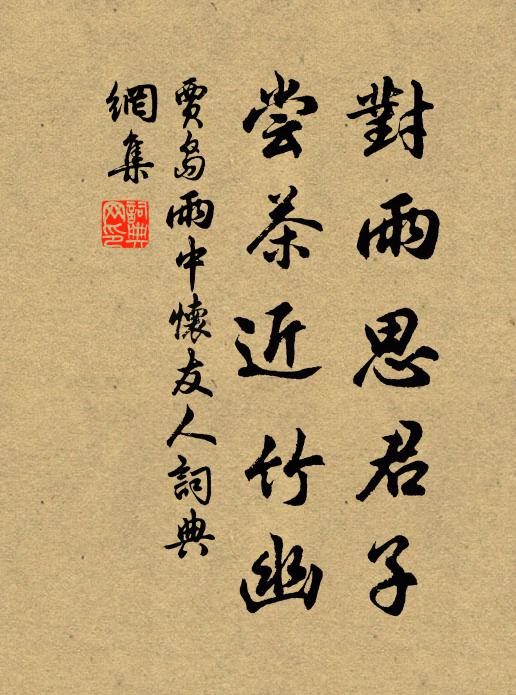 對雨思君子
嘗茶近竹幽
賈島雨中懷友人詞典
網集
詞典
网印